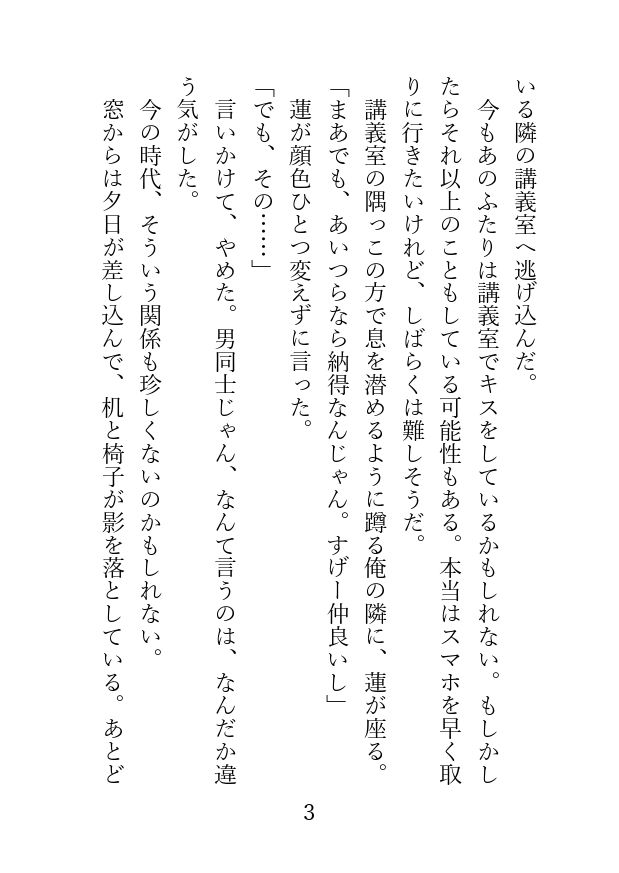 いる隣の講義室へ逃げ込んだ。
　今もあのふたりは講義室でキスをしているかもしれない。もしかし
たらそれ以上のこともしている可能性もある。本当はスマホを早く取
りに行きたいけれど、しばらくは難しそうだ。
　講義室の隅っこの方で息を潜めるように蹲る俺の隣に、蓮が座る。
「まあでも、あいつらなら納得なんじゃん。すげー仲良いし」
　蓮が顔色ひとつ変えずに言った。
「でも、その……」
　言いかけて、やめた。男同士じゃん、なんて言うのは、なんだか違
う気がした。
　今の時代、そういう関係も珍しくないのかもしれない。
　窓からは夕日が差し込んで、机と椅子が影を落としている。あとど
3